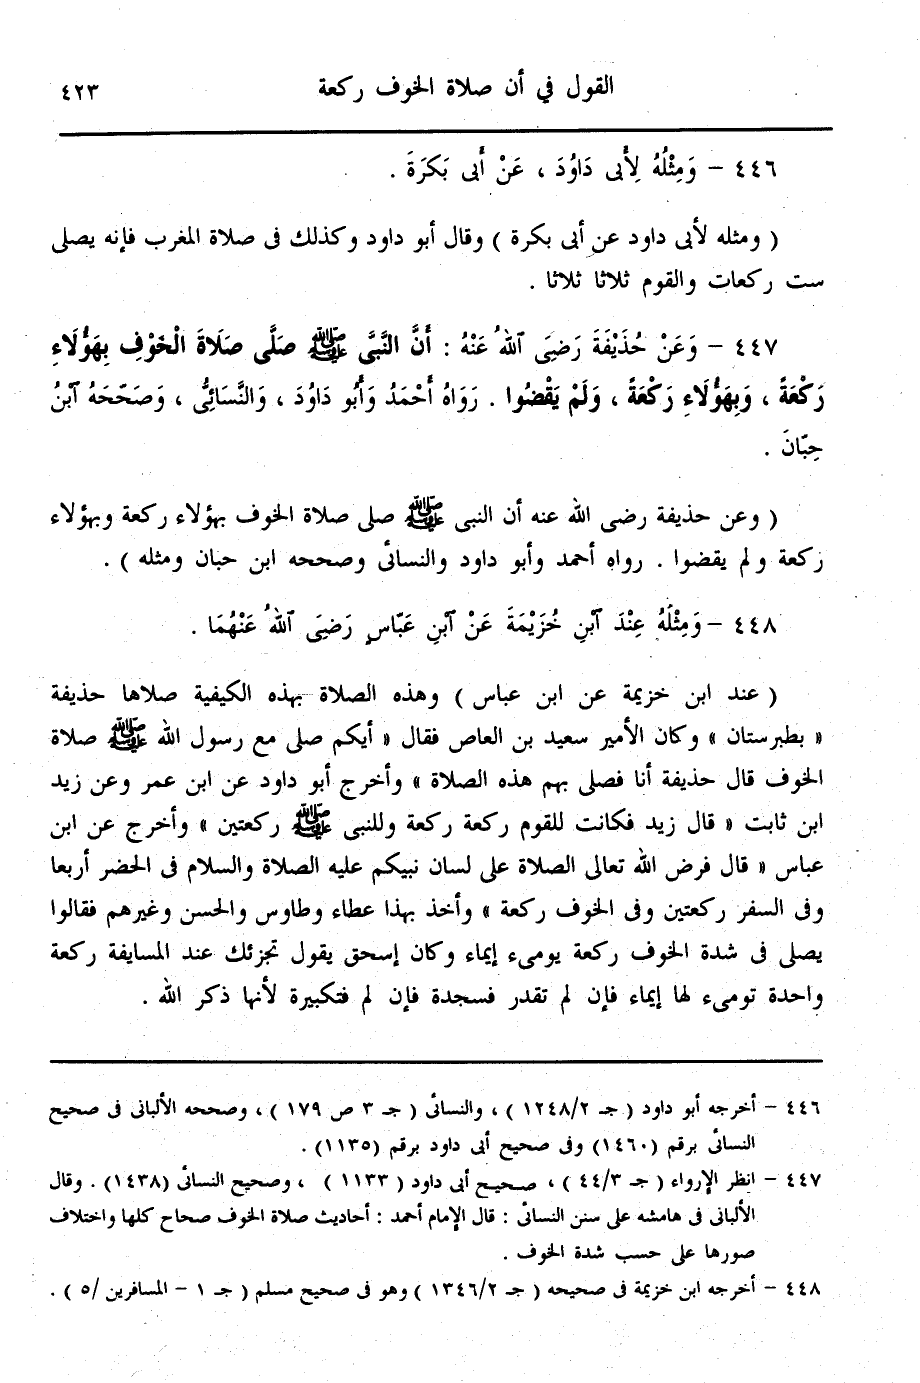 القول في أن صلاة الخوف ركعة
٤٢٣
٤٤٦ – وَمِثْلُهُ لِأَبى دَاوُدَ ، عَنْ أَبى بَكرَةَ .
( ومثله لأبى داود عن أبى بكرة ) وقال أبو داود وكذلك فى صلاة المغرب فإنه يصلى
ست ركعات والقوم ثلاثا ثلاثا .
٤٤٧ – وَعَنْ حُذَيْفَةَ رَضِىَ ٱللهُ عَنْهُ : أَنَّ النَّبىَّ ﷺ صَلَّى صَلَاةَ الْخَوْفِ بِهَؤُلَاءِ
رَكْعَةً ، وَبِهَؤُلَاءِ رَكْعَةً ، وَلَمْ يَقْضُوا . رَوَاهُ أَحْمَدُ وَأَبُو دَاوُدَ ، وَالنَّسَائِىُّ ، وَصَحّحَهُ ٱبْنُ
حِبّانَ .
( وعن حذيفة رضى الله عنه أن النبى ﷺ صلى صلاة الخوف بهؤلاء ركعة وبهؤلاء
ركعة ولم يقضوا . رواه أحمد وأبو داود والنسائى وصححه ابن حبان ومثله ) .
٤٤٨ – وَمِثْلُهُ عِنْدَ ٱبْنِ خُزَيْمَةَ عَنْ ٱبْنِ عَبّاسٍ رَضِىَ ٱللهُ عَنْهُمَا .
( عند ابن خزيمة عن ابن عباس ) وهذه الصلاة بهذه الكيفية صلاها حذيفة
« بطبرستان » وكان الأمير سعيد بن العاص فقال « أيكم صلى مع رسول الله ﷺ صلاة
الخوف قال حذيفة أنا فصلى بهم هذه الصلاة » وأخرج أبو داود عن ابن عمر وعن زيد
ابن ثابت « قال زيد فكانت للقوم ركعة ركعة وللنبى ﷺ ركعتين » وأخرج عن ابن
عباس « قال فرض الله تعالى الصلاة على لسان نبيكم عليه الصلاة والسلام فى الحضر أربعا
وفى السفر ركعتين وفى الخوف ركعة » وأخذ بهذا عطاء وطاوس والحسن وغيرهم فقالوا
يصلى فى شدة الخوف ركعة يومىء إيماء وكان إسحق يقول تجزئك عند المسايفة ركعة
واحدة تومىء لها إيماء فإن لم تقدر فسجدة فإن لم فتكبيرة لأنها ذكر الله .
٤٤٦ – أخرجه أبو داود ( جـ ١٢٤٨/٢ ) ، والنسائى ( جـ ٣ ص ١٧٩ ) ، وصححه الألبانى فى صحيح
النسائى برقم (١٤٦٠) وفى صحيح أبى داود برقم (١١٣٥) .
٤٤٧ – انظر الإرواء ( جـ ٤٤/٣ ) ، صحيح أبى داود ( ١١٣٣ ) ، وصحيح النسائى (١٤٣٨) . وقال
الألبانى فى هامشه على سنن النسائى : قال الإمام أحمد : أحاديث صلاة الخوف صحاح كلها واختلاف
صورها على حسب شدة الخوف .
٤٤٨ – أخرجه ابن خزيمة فى صحيحه ( جـ ١٣٤٦/٢ ) وهو فى صحيح مسلم ( جـ ١ – المسافرين /٥ ) .